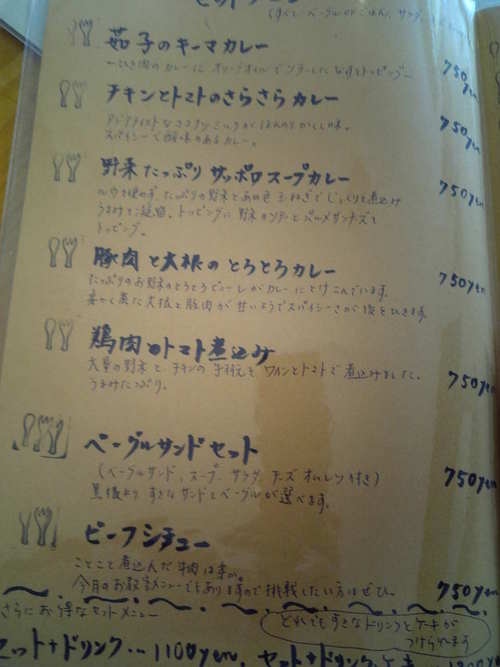 セットメニュー
茄子のキーマカレー
ひき肉のカレーに オリーブオイルでソテーしたなすをトッピング
750yen
チキンとトマトのさらさらカレー
ココナッツミルクがほんのりやさしい味。
スパイシーで酸味のあるカレー。
750yen
野菜たっぷり サッポロスープカレー
ルウを使わず、たっぷりの野菜とあめ色玉ねぎでじっくりと煮込み
うまみを凝縮。トッピングに 野菜のソテーとパルメザンチーズを
トッピング。
750yen
豚肉と大根の とろとろカレー
たっぷりのお野菜のとろとろピューレがカレーにとけこんでいます。
柔かく煮た大根と豚肉が 甘いようでスパイシーさが後をひきます。
750yen
鶏肉のトマト煮込み
大量の野菜と、チキンの手羽元を ワインとトマトで煮込みました。
うまみたっぷり。
750yen
ベーグルサンドセット
(ベーグルサンド、スープ、サラダ、チーズオムレツ付き)
黒板より すきなサンドとベーグルが選べます。
750yen
ビーフシチュー
ことこと煮込んだ牛肉は幸か。
今月のお得メニューでもありますので挑戦したい方はぜひ。
750yen
さらにお得なセットメニュー
どれでもすきなドリンクとケーキが
つけられます
セット+ドリンク… 1100yen、セット+ドリンク+ケーキ